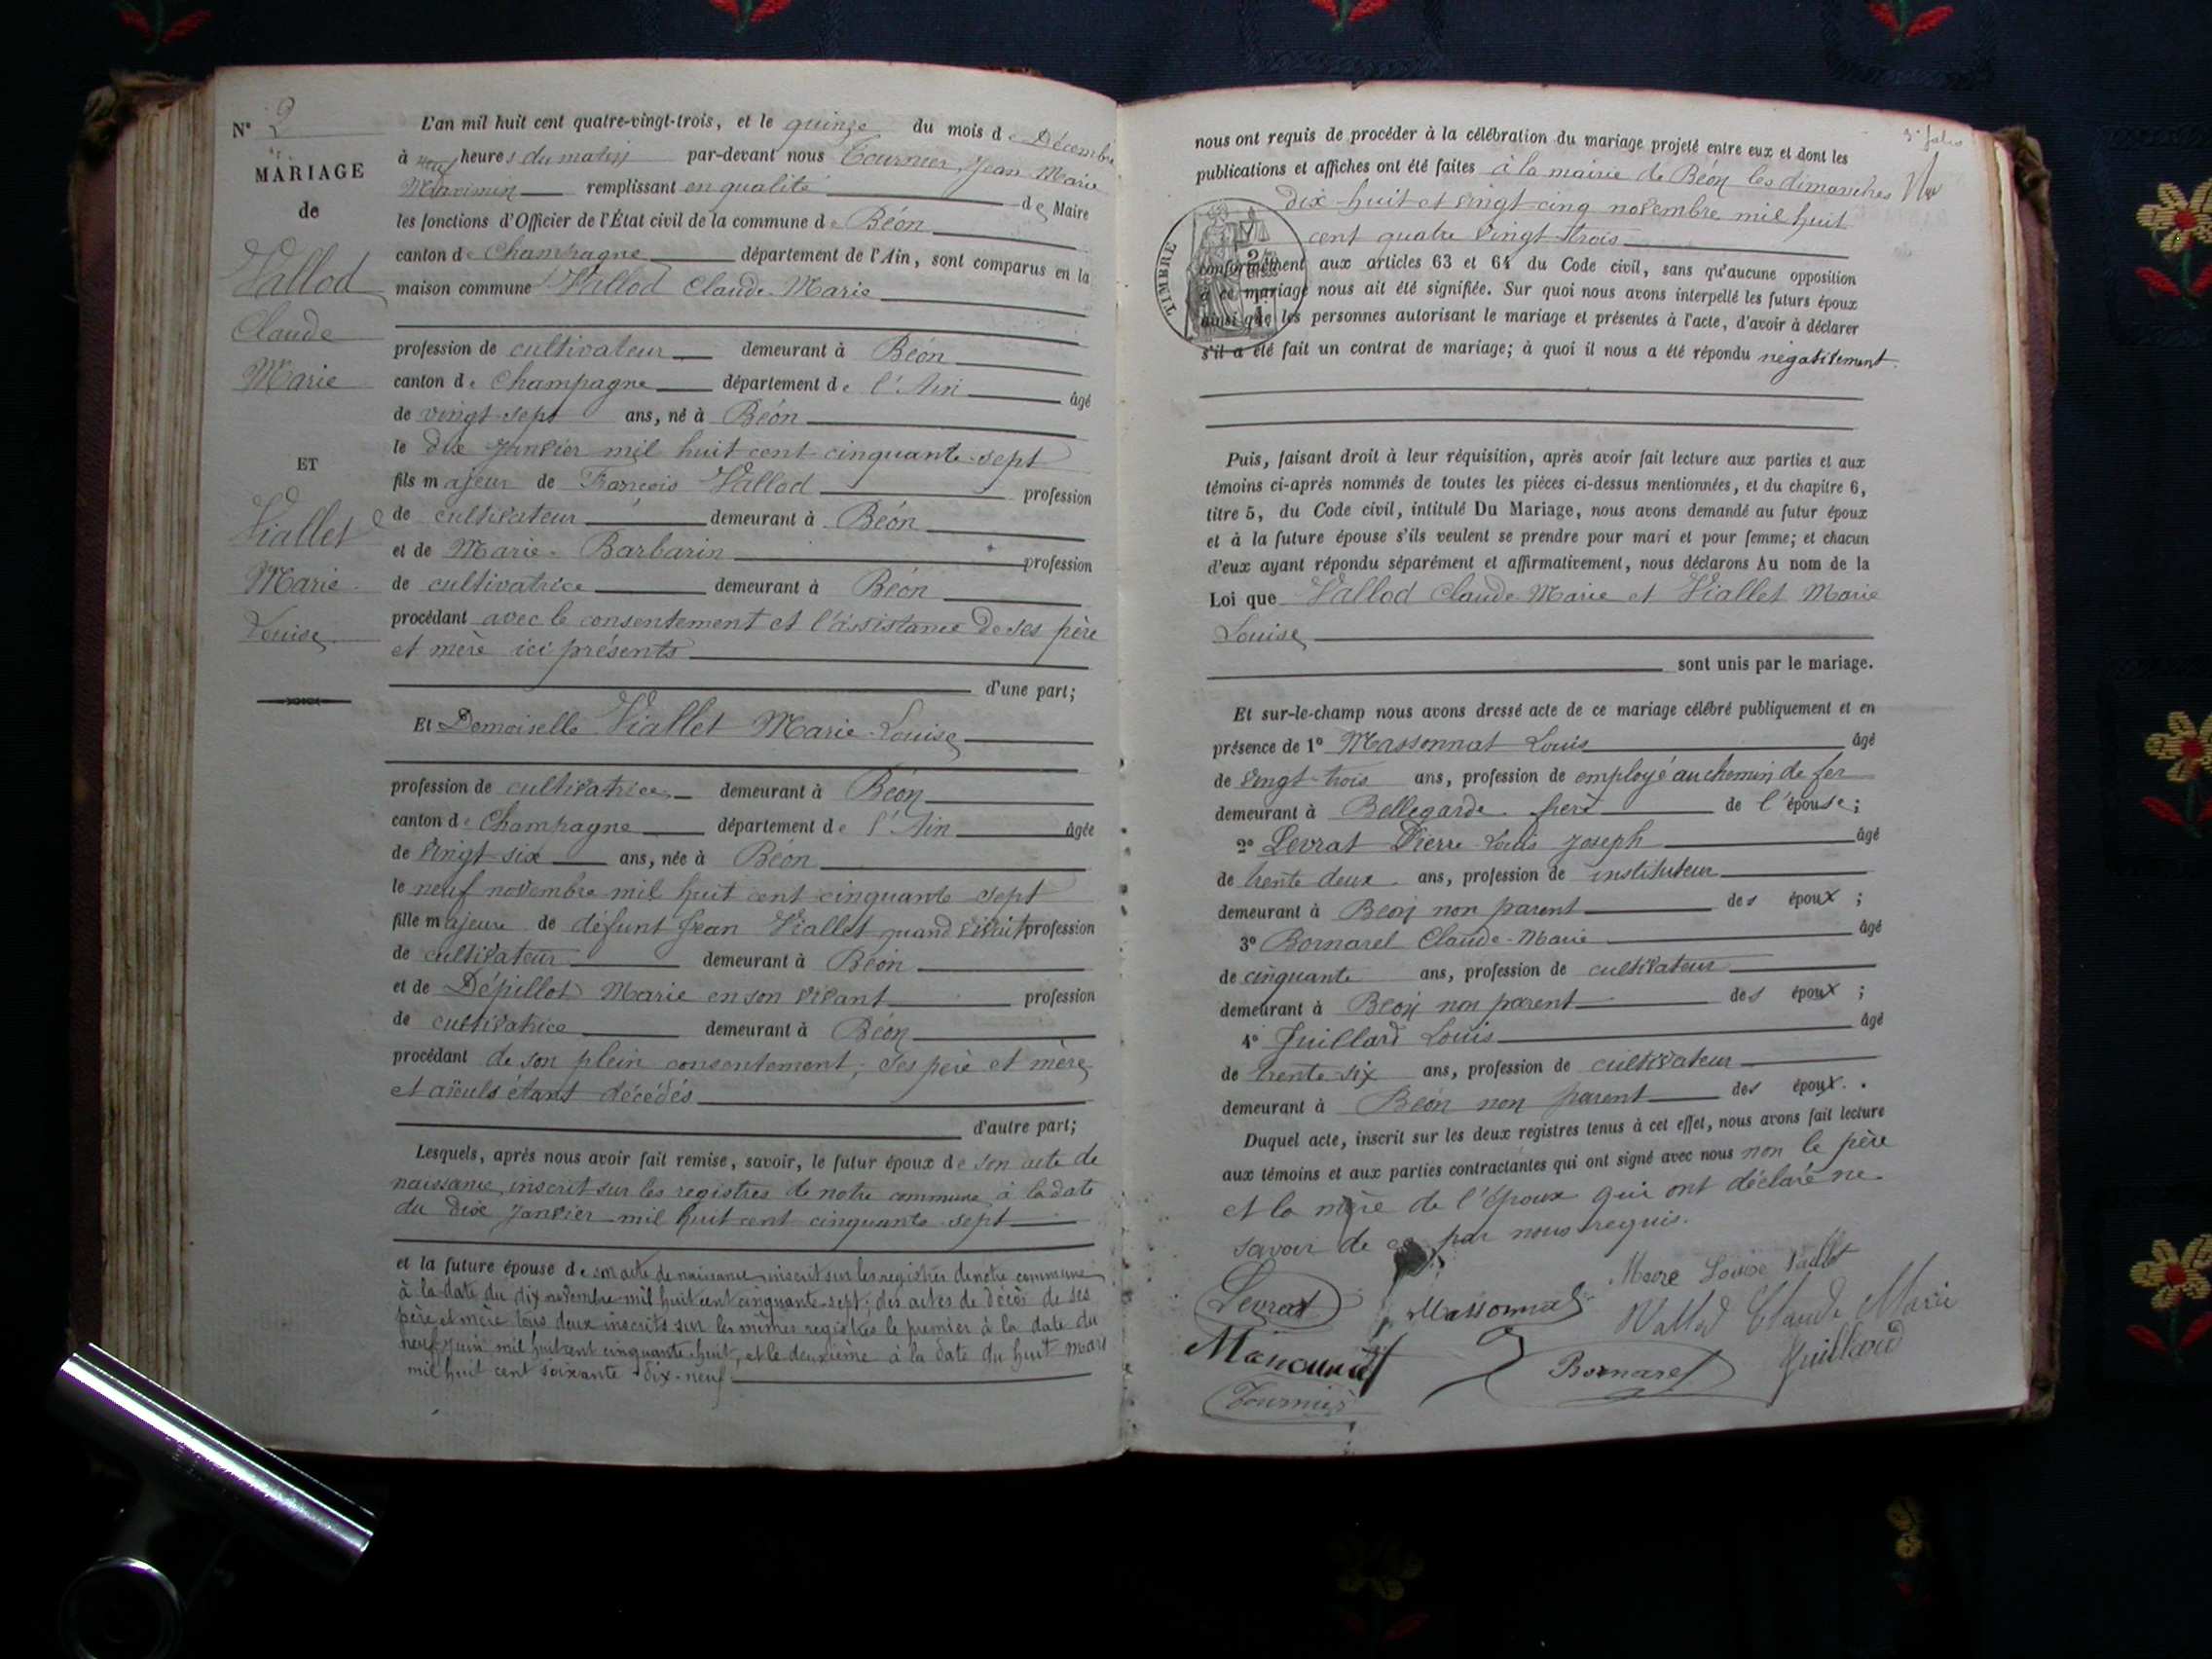 N° 2
MARIAGE
de
Vallod
Claude
Marie
ET
Viallet
Marie
Louise
L'an mil huit cent quatre-vingt-trois, et le quinze du mois de Décembre
à neuf heures du matin par-devant nous Tournier, Jean Marie
Maximin remplissant en qualité de Maire
les fonctions d'Officier de l'État civil de la commune de Béon
canton de Champagne département de l'Ain, sont comparus en la
maison commune Vallod Claude Marie
profession de cultivateur demeurant à Béon
canton de Champagne département de l'Ain âgé
de vingt-sept ans, né à Béon
le dix Janvier mil huit cent cinquante-sept
fils majeur de François Vallod profession
de cultivateur demeurant à Béon
et de Marie Barbarin profession
de cultivatrice demeurant à Béon
procédant avec le consentement et l'assistance de ses père
et mère ici présents
d'une part;
Et Demoiselle Viallet Marie Louise
profession de cultivatrice demeurant à Béon
canton de Champagne département de l'Ain âgée
de vingt-six ans, née à Béon
le neuf novembre mil huit cent cinquante sept
fille majeure de défunt Jean Viallet quand vivait profession
de cultivateur demeurant à Béon
et de Dépillot Marie en son vivant profession
de cultivatrice demeurant à Béon
procédant de son plein consentement, ses père et mère
et aïeuls étant décédés
d'autre part;
Lesquels, après nous avoir fait remise, savoir, le futur époux de son acte de
naissance, inscrit sur les registres de notre commune à la date
du dix Janvier mil huit cent cinquante sept
et la future épouse de son acte de naissance inscrit sur les registres de notre commune
à la date du dix novembre mil huit cent cinquante-sept; des actes de décès de ses
père et mère tous deux inscrits sur les mêmes registres le premier à la date du
neuf Juin mil huit cent cinquante-huit, et le deuxième à la date du huit mars
mil huit cent soixante dix-neuf
nous ont requis de procéder à la célébration du mariage projeté entre eux et dont les
publications et affiches ont été faites à la mairie de Béon les dimanches
dix-huit et vingt-cinq novembre mil huit
cent quatre vingt trois
TIMBRE
conformément aux articles 63 et 64 du Code civil, sans qu'aucune opposition
à ce mariage nous ait été signifiée. Sur quoi nous avons interpellé les futurs époux
ainsi que les personnes autorisant le mariage et présentes à l'acte, d'avoir à déclarer
s'il a été fait un contrat de mariage; à quoi il nous a été répondu négativement.
Puis, faisant droit à leur réquisition, après avoir fait lecture aux parties et aux
témoins ci-après nommés de toutes les pièces ci-dessus mentionnées, et du chapitre 6,
titre 5, du Code civil, intitulé Du Mariage, nous avons demandé au futur époux
et à la future épouse s'ils veulent se prendre pour mari et pour femme; et chacun
d'eux ayant répondu séparément et affirmativement, nous déclarons Au nom de la
Loi que Vallod Claude Marie et Viallet Marie
Louise
sont unis par le mariage.
Et sur-le-champ nous avons dressé acte de ce mariage célébré publiquement et en
présence de 1° Massonnat Louis âgé
de vingt-trois ans, profession de employé au chemin de fer
demeurant à Bellegarde frère de l'épouse;
2° Levrat Pierre Louis Joseph âgé
de trente deux ans, profession de instituteur
demeurant à Béon non parent des époux;
3° Bornarel Claude-Marie âgé
de cinquante ans, profession de cultivateur
demeurant à Béon non parent des époux;
4° Juillard Louis âgé
de trente-six ans, profession de cultivateur
demeurant à Béon non parent des époux.
Duquel acte, inscrit sur les deux registres tenus à cet effet, nous avons fait lecture
aux témoins et aux parties contractantes qui ont signé avec nous non le père
et la mère de l'époux qui ont déclaré ne
savoir de ce par nous requis.
Marie Louise Viallet
Levrat Massonnat Vallod Claude Marie
Bornarel Juillard
Tournier